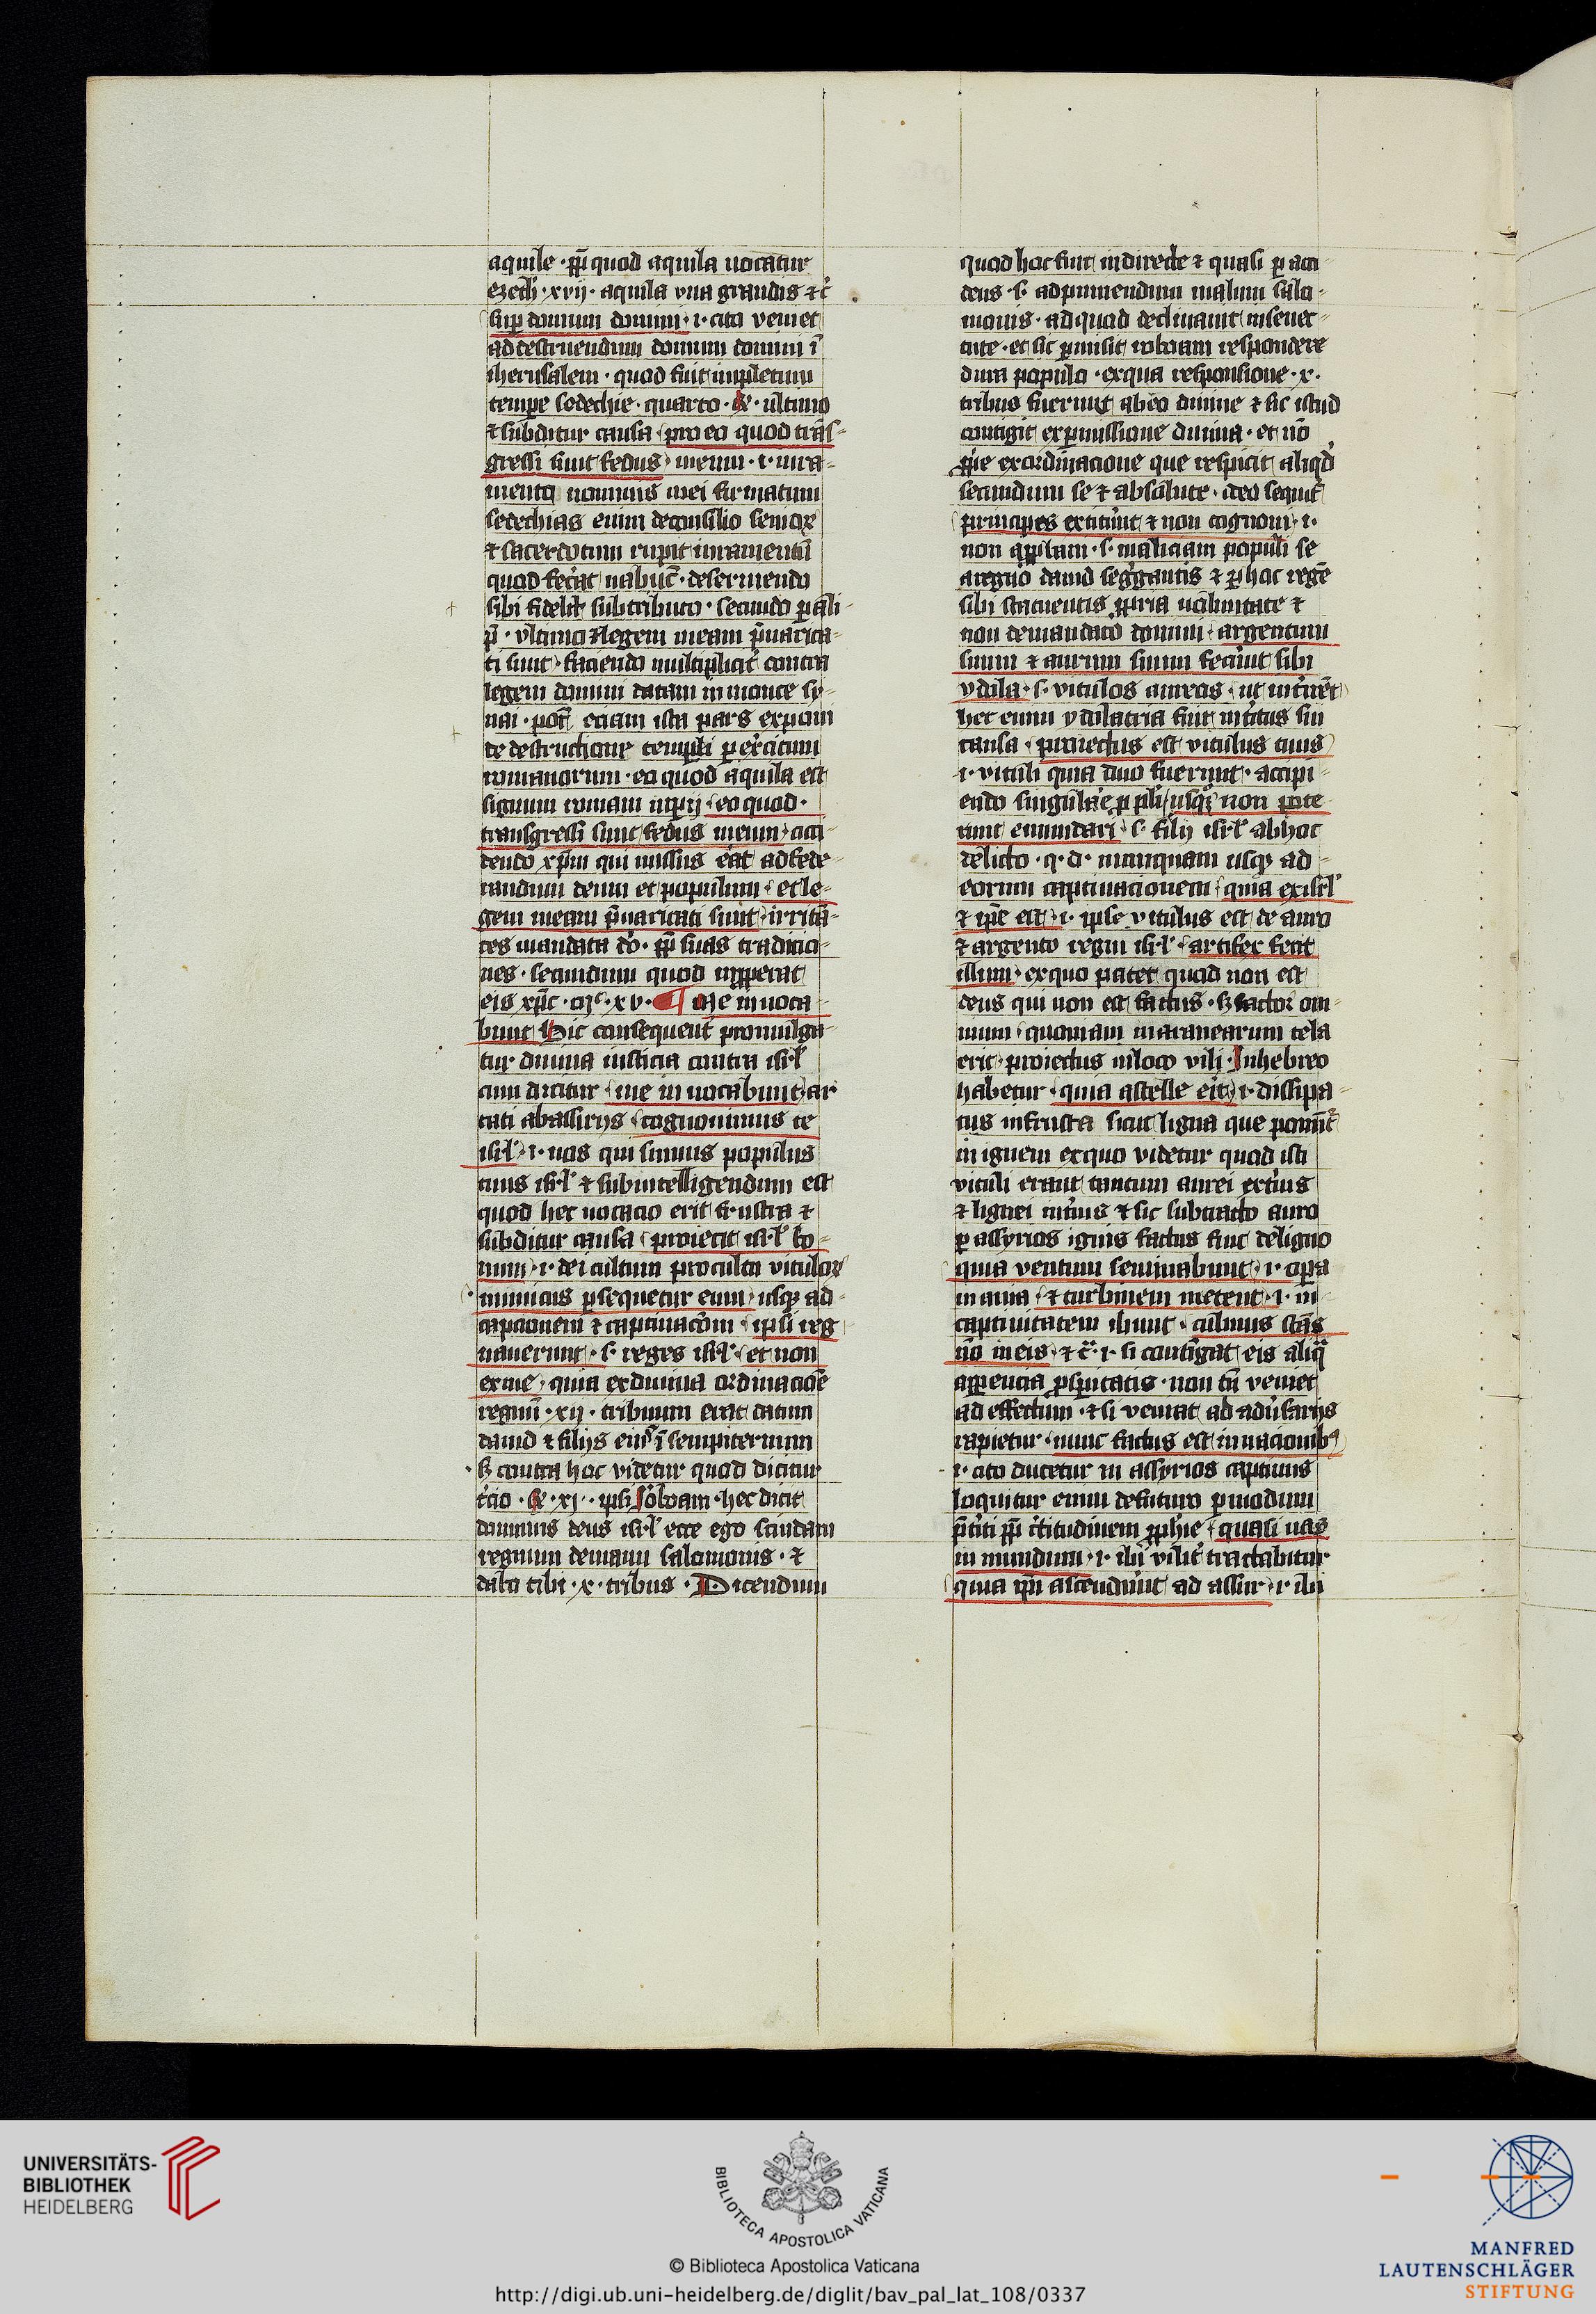 aquile · ꝓpt̄ quod aquila uocatur
ezech · xvij · aquila vna grandis ⁊c̄
suꝑ domum domini · i · cito veniet
ad destruendum domum domini ī
iherusalem · quod fuit impletum
tempe sedechie · quarto · Re · ultimo
⁊ subditur causa pro eo quod trās-
gressi sunt fedus meum · i · iura-
mento nominis mei firmatum
sedechias enim de consilio senioꝝ
⁊ sacerdotum rupit iuramentū
quod fec̄at nabuc̄ · de seruiendo
sibi fidelit̄ sub tributo · secundo ꝑali-
p̄ · vltimo ⁊ legem meam p̄uarica-
ti sunt · faciendo multiplicit̄ contra
legem domini datam in monte sy-
nai · pot̄ eciam ista pars exponi
de destructione templi ꝑ exc̄itum
romanorum · eo quod aquila est
signum romani imꝑij · eo quod ·
transgressi sunt fedus meum · occi-
dendo xp̄m qui missus erat ad fede-
randum deum et populum · et le-
gem meam p̄uaricati sunt · irritā-
tes mandata dei · ꝓpt̄ suas tradicio-
nes · secundum quod imꝓperat
eis xp̄c · mͭ · xv · ¶ Me inuoca-
bunt Hic consequent̄ promulga-
tur diuina iusticia contra isrl̄
cum dicitur · me inuocabunt · ar
tati ab assirijs · cognouimus te
isrl̄ · i · nos qui sumus populus
tuus isrl̄ ⁊ subintelligendum est
quod hec uocacio erit frustra ⁊
subditur causa · proiecit isrl̄ bo-
num · i · dei cultum pro cultu vituloꝝ
inimicus ꝑsequetur eum · usqꝫ ad
capcionem ⁊ captiuacōem · ipsi reg
nauerunt · s · reges isrl̄ · et non
ex me · quia ex diuina ordinacione
regnū · xij · tribuum erat datum
dauid ⁊ filijs eiꝰ ī sempiternum
sꝫ contra hoc videtur quod dicitur
t̄cio · Re · xi · ipsi Ieroboam · hec dicit
dominus deus isrl̄ ecce ego scindam
regnum de manu salomonis · ⁊
dabo tibi · x · tribus · Dicendum
quod hoc fuit indirecte ⁊ quasi ꝑ acci-
dens · s · ad puniendum malum salo-
monis · ad quod declinauit in senec-
tute · et sic ꝑmisit roboam respondere
dura populo · ex qua responsione · x ·
tribus fuerunt ab eo diuise ⁊ sic istud
contigit ex ꝑmissione diuina · et nō
ꝓprie ex ordinacione que respicit aliqd̄
secundum se ⁊ absolute · ideo sequit̄
principes extiterunt ⁊ non cognoui · i ·
non approbaui · s · maliciam populi se
a regno dauid segregantis ⁊ ꝑ hoc regē
sibi statuentis ꝓpria uoluntate ⁊
non de mandato domini · argentum
suum ⁊ aurum suum fecerunt sibi
ydola · s · vitulos aureos · ut int̄irēt
hec enim ydolatria fuit int̄itus sui
causa · proiectus est vitulus tuus
· i · vituli quia duo fuerunt · accipi-
endo singulare ꝓ pl̄i · usqꝫ quo non pote-
runt emundari · s · filij isrl̄ ab hoc
delicto · q · d · nunquam usqꝫ ad
eorum captiuacionem · quia ex isrl̄
⁊ ip̄e est · i · ipse vitulus est de auro
⁊ argento regni isrl̄ · artifex fecit
illum · ex quo patet quod non est
deus qui non est factus · sꝫ factor om-
nium · quoniam in aranearum tela
erit · proiectus in loco vili · In hebreo
habetur · quia astelle erit · i · dissipa-
tus in frusta sicut ligna que ponūt̄
in ignem ex quo videtur quod isti
vituli erant tantum aurei ext̄ius
⁊ lignei int̄ius ⁊ sic subtracto auro
ꝑ assyrios ignis factus fuit de ligno
quia ventum seminabunt · i · opera
inania · ⁊ turbinem metent · i · in
captiuitatem ibunt · culmus stās
nō in eis · ⁊c̄ · i · si contingat eis aliq̄
apparencia ꝓsperitatis · non tn̄ veniet
ad effectum · ⁊ si veniat ad aduersarijs
rapietur · nunc factus est in nacionibꝫ
· i · cito ducetur in assyrios captiuus
loquitur enim de futuro ꝑ modum
p̄teriti ꝓpt̄ certitudinem ꝓphīe · quasi uas
inmundum · i · ibi vilit̄ tractabitur
quia ip̄i ascenderunt ad assur · i · ibi
UNIVERSITÄTS-
BIBLIOTHEK
HEIDELBERG
BIBLIOTECA APOSTOLICA VATICANA
© Biblioteca Apostolica Vaticana
http://digi.ub.uni-heidelberg.de/diglit/bav_pal_lat_108/0337
MANFRED
LAUTENSCHLÄGER
STIFTUNG